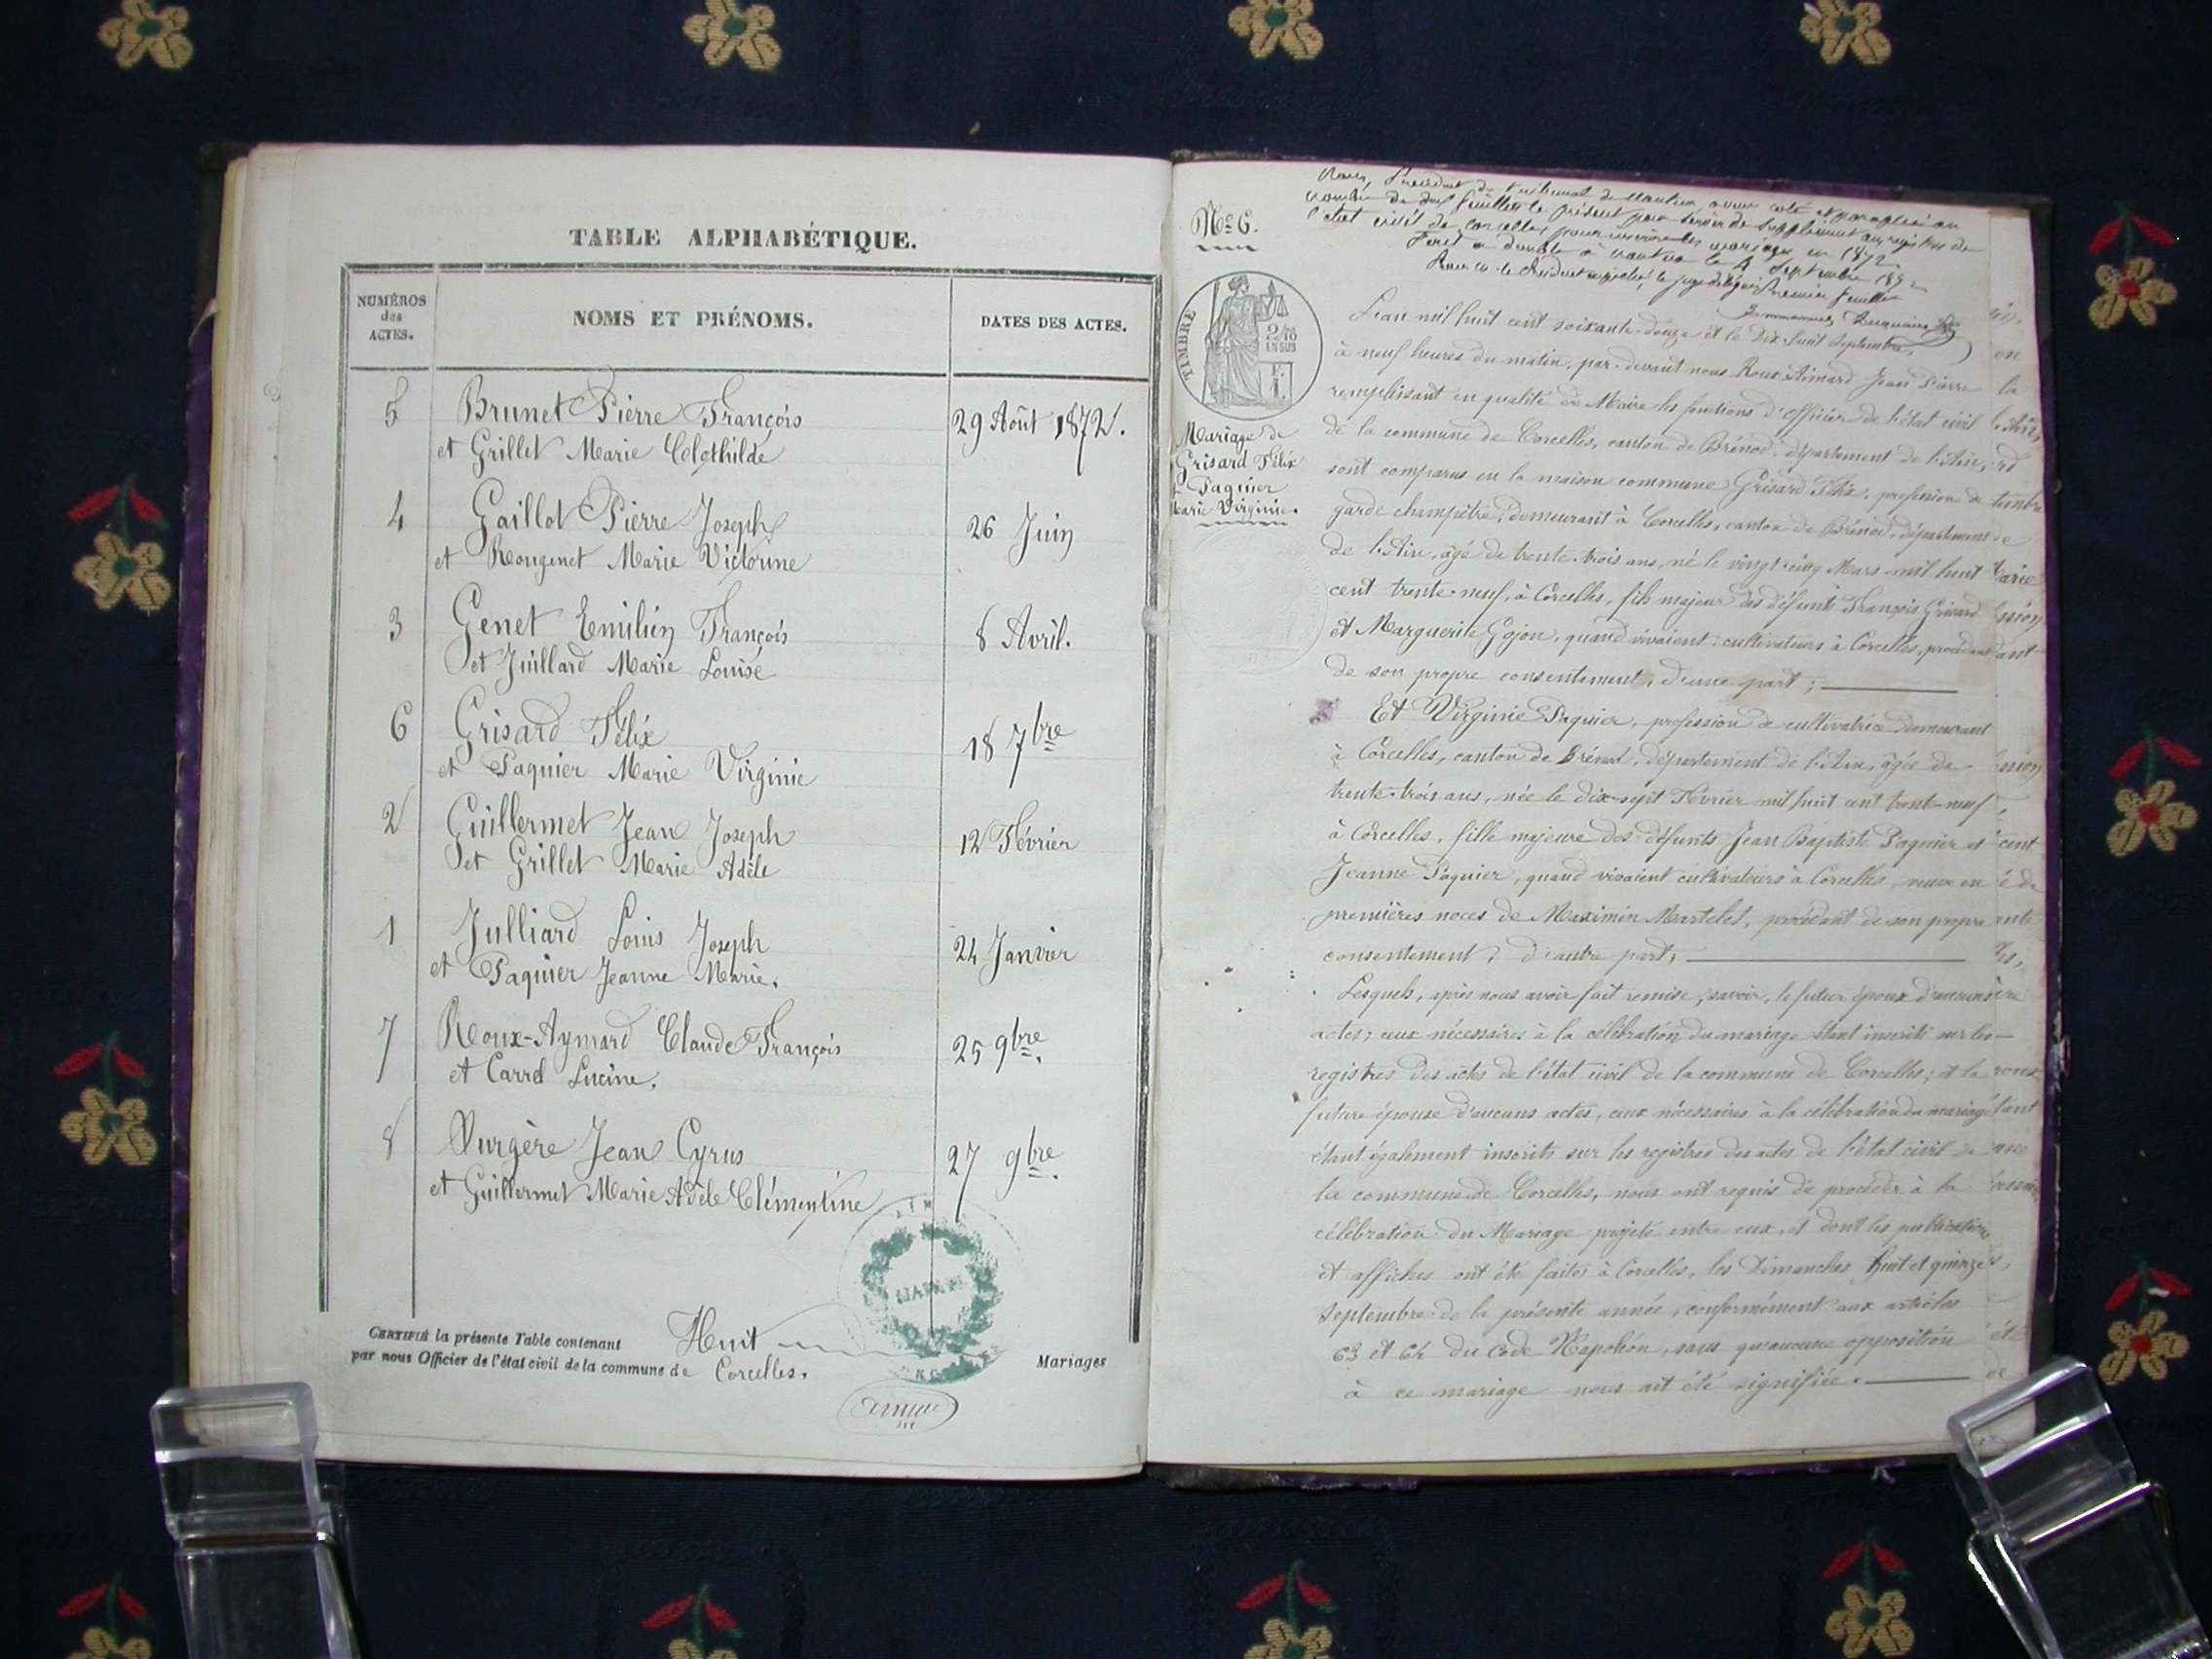 TABLE ALPHABÉTIQUE.
NUMÉROS
des
ACTES.
NOMS ET PRÉNOMS.
DATES DES ACTES.
5 Brunet Pierre François 29 Août 1872.
et Grillet Marie Clothilde
4 Gaillot Pierre Joseph 26 Juin
et Rougenet Marie Victorine
3 Genet Emilien François 8 Avril.
et Juillard Marie Louise
6 Grisard Félix 18 7bre
et Paquier Marie Virginie
2 Guillermet Jean Joseph 12 Février
et Grillet Marie Adèle
1 Julliard Louis Joseph 24 Janvier
et Paquier Jeanne Marie.
7 Roux-Aymard Claude François 25 9bre.
et Carrel Lucine.
8 Vurgère Jean Cyrus 27 9bre.
et Guillermet Marie Adèle Clémentine
AIN
MAIRIE
CERTIFIÉ la présente Table contenant Huit Mariages
par nous Officier de l'état civil de la commune de Corcelles.
No 6.
Nous, Président du tribunal de Nantua, avons coté et paraphé au
nombre de deux feuilles le présent pour servir de supplément aux registres de
l'état civil de Corcelles pour inscrire les mariages en 1872
fait à double à Nantua le 4 Septembre 1872
Pour le Président empêché, le juge délégué Première feuille
TIMBRE
2/10
EN SUS
F.
1.
Mariage de
Grisard Félix
& Paquier
Marie Virginie.
L'an mil huit cent soixante-douze et le Dix-huit Septembre,
à neuf heures du matin, par-devant nous Roux Aimard Jean Pierre
remplissant en qualité de Maire les fonctions d'officier de l'état civil
de la commune de Corcelles, canton de Brénod, département de l'Ain,
sont comparus en la maison commune Grisard Félix, profession de
garde champêtre, demeurant à Corcelles, canton de Brénod, département
de l'Ain, âgé de trente-trois ans, né le vingt-cinq Mars mil huit
cent trente-neuf, à Corcelles, fils majeur des défunts François Grisard
et Marguerite Gojon, quand vivaient cultivateurs à Corcelles, procédant
de son propre consentement, d'une part;
Et Virginie Paquier, profession de cultivatrice demeurant
à Corcelles, canton de Brénod, département de l'Ain, âgée de
trente-trois ans, née le dix-sept Février mil huit cent trente-neuf
à Corcelles, fille majeure des défunts Jean Baptiste Paquier et
Jeanne Paquier, quand vivaient cultivateurs à Corcelles, veuve en
premières noces de Maximin Martelet, procédant de son propre
consentement, d'autre part,
Lesquels, après nous avoir fait remise, savoir, le futur époux d'aucuns
actes; ceux nécessaires à la célébration du mariage étant inscrits sur les
registres des actes de l'état civil de la commune de Corcelles; et la
future épouse d'aucuns actes, ceux nécessaires à la célébration du mariage
étant également inscrits sur les registres des actes de l'état civil de
la commune de Corcelles, nous ont requis de procéder à la
célébration du Mariage projeté entre eux, et dont les publications
et affiches ont été faites à Corcelles, les Dimanches huit et quinze
Septembre de la présente année, conformément aux articles
63 et 64 du Code Napoléon, sans qu'aucune opposition
à ce mariage nous ait été signifiée.